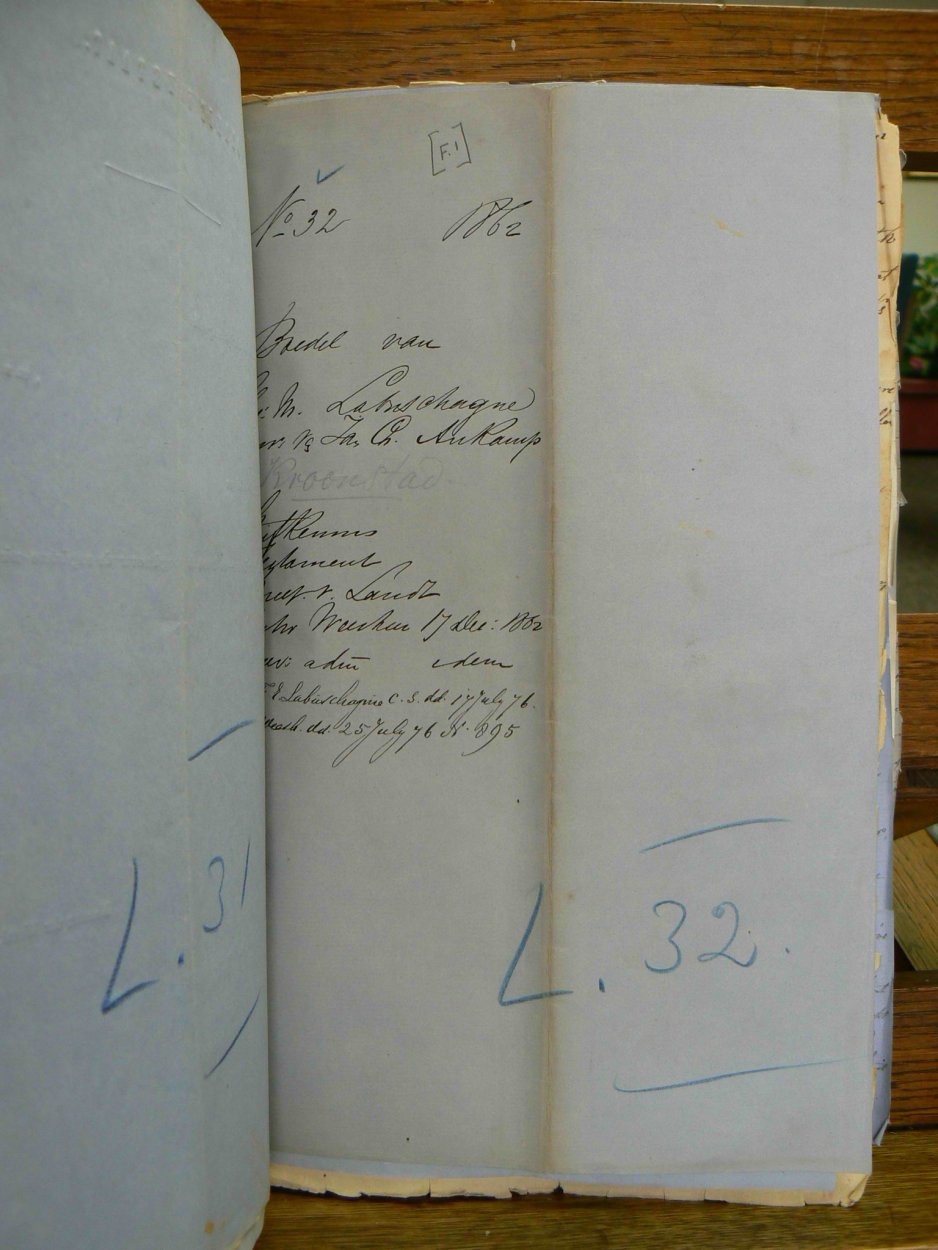 [F.1]
No 32 1862
Boedel van
M. Labuschagne
Js Ch. Aukamp
Kroonstad
Kennis
v. Landt
Weeskm 17 Dec: 1862
adm idem
E Labuschagne C. S. dd. 17 July 76.
dd. 25 July 76 N. 895
L. 31
L. 32.